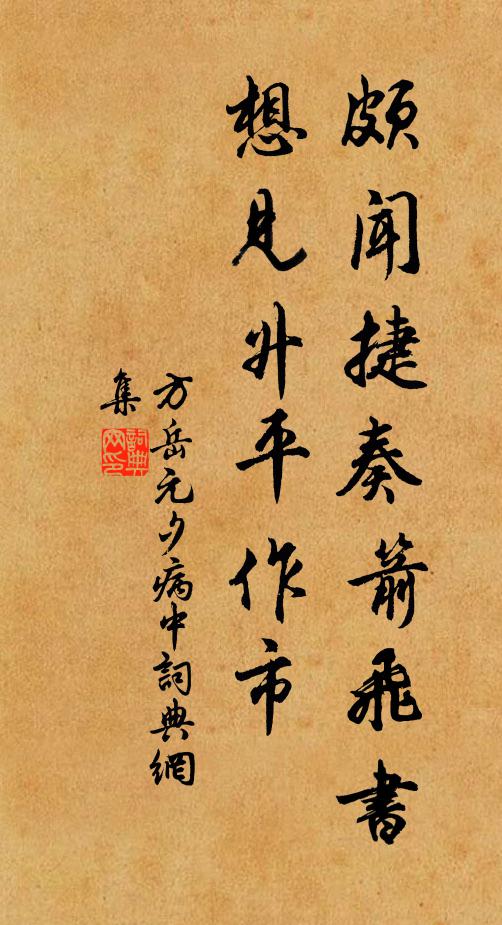 頗聞捷奏箭飛書
想見升平作市
方岳元夕病中詞典網
集
詞典
网印